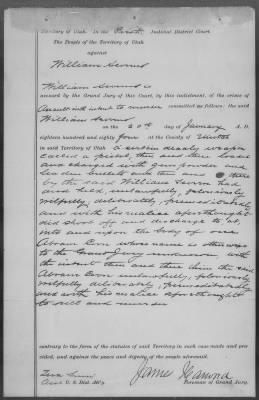 Territory of Utah. In the First Judicial District Court.
The People of the Territory of Utah
against
William
William is
accused by the Grand Jury of this Court, by this indictment, of the crime of
Assault with intent to murder committed as follows: the said
William
on the 20th day of January A. D.
eighteen hundred and eighty four at the County of
in said Territory of Utah a certain deadly weapon
called a pistol, then and there loaded
and charged with gun powder and
leaden bullets and then and there
by the said William had
and held, unlawfully, feloniously
wilfully, deliberately, premeditatedly
and with his malice aforethought
did shoot off and discharge to at
onto and upon the body of one
Abram whose name is otherwise
to the Grand Jury unknown, with
the intent then and there him the said
Abram unlawfully, feloniously
wilfully deliberately, premeditatedly
and with his malice aforethought
to kill and murder
contrary to the form of the statutes of said Territory in such case made and pro-
vided, and against the peace and dignity of the people aforesaid.
James
Asst U. S. Dist. Att'y. Foreman of Grand Jury.